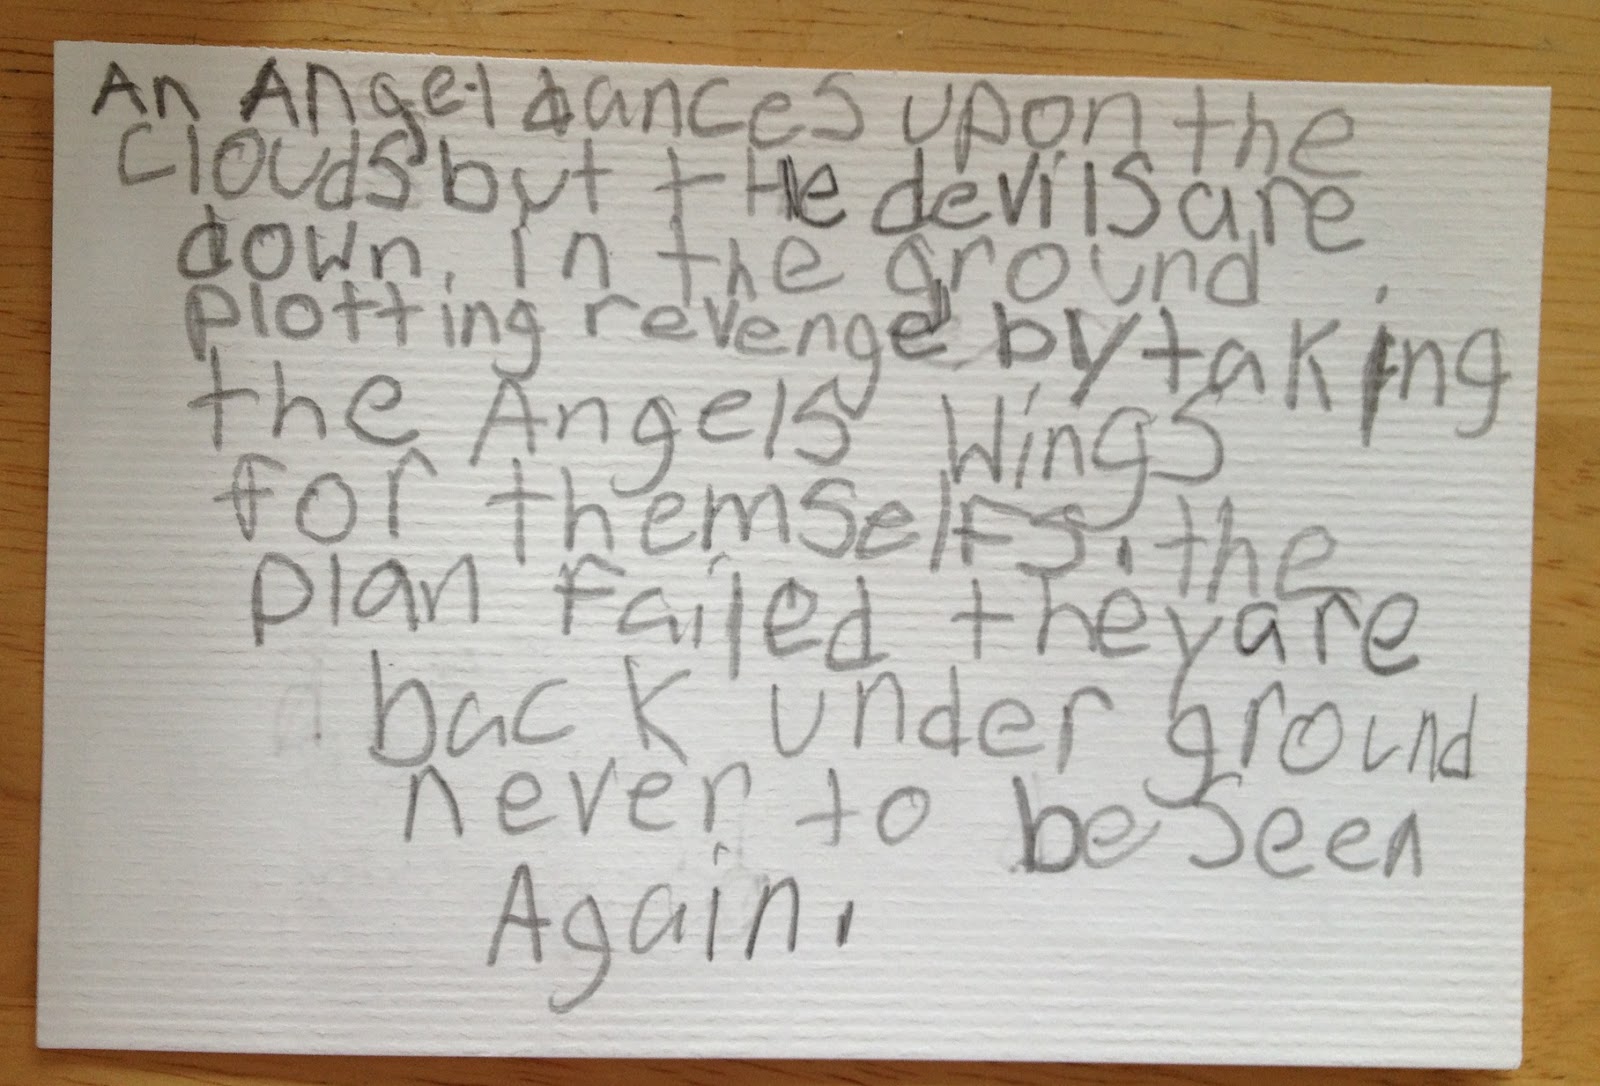 An Angel dances upon the
Clouds but the devils are
down. in the ground
plotting revenge by taking
the Angels Wings
for themselfs. the
plan failed they are
back under ground
never to be Seen
Again.